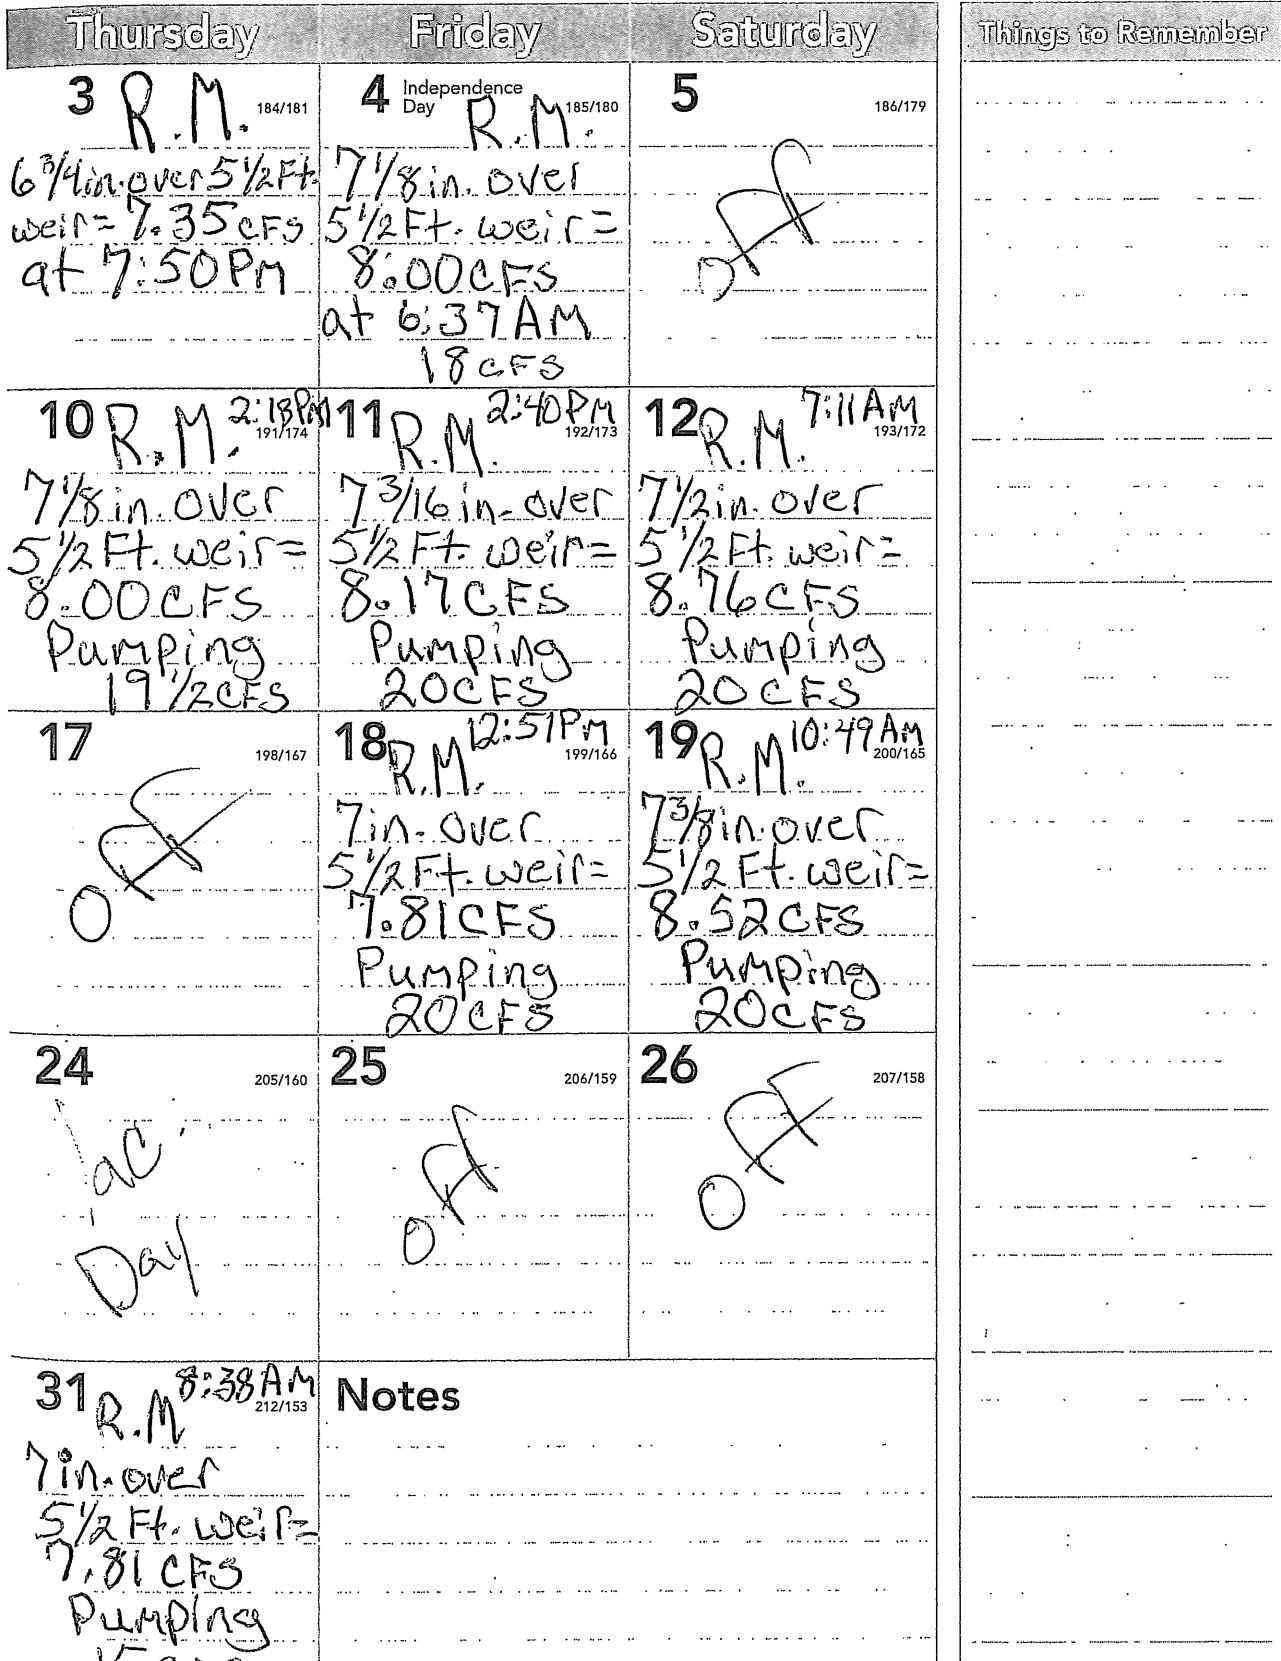 Thursday
Friday
Saturday
Things to Remember
3 R.M. 184/181
6 3/4 in. over 5 1/2 Ft.
weir = 7.35 CFS
at 7:50 PM
4 Independence Day R.M. 185/180
7 1/8 in. over
5 1/2 Ft. weir =
8.00 CFS
at 6:37 AM
18 CFS
5 186/179
OFF
10 R.M. 2:18 PM 191/174
7 1/8 in. over
5 1/2 Ft. weir =
8.00 CFS
Pumping
19 1/2 CFS
11 R.M. 2:40 PM 192/173
7 3/16 in. over
5 1/2 Ft. weir =
8.17 CFS
Pumping
20 CFS
12 R.M. 7:11 AM 193/172
7 1/2 in. over
5 1/2 Ft. weir =
8.76 CFS
Pumping
20 CFS
17 198/167
OFF
18 R.M. 12:51 PM 199/166
7 in. over
5 1/2 Ft. weir =
7.81 CFS
Pumping
20 CFS
19 R.M. 10:49 AM 200/165
7 3/8 in. over
5 1/2 Ft. weir =
8.52 CFS
Pumping
20 CFS
24 205/160
Day
25 206/159
OFF
26 207/158
OFF
31 R.M 8:38 AM 212/153
7 in. over
5 1/2 Ft. weir =
7.81 CFS
Pumping
Notes